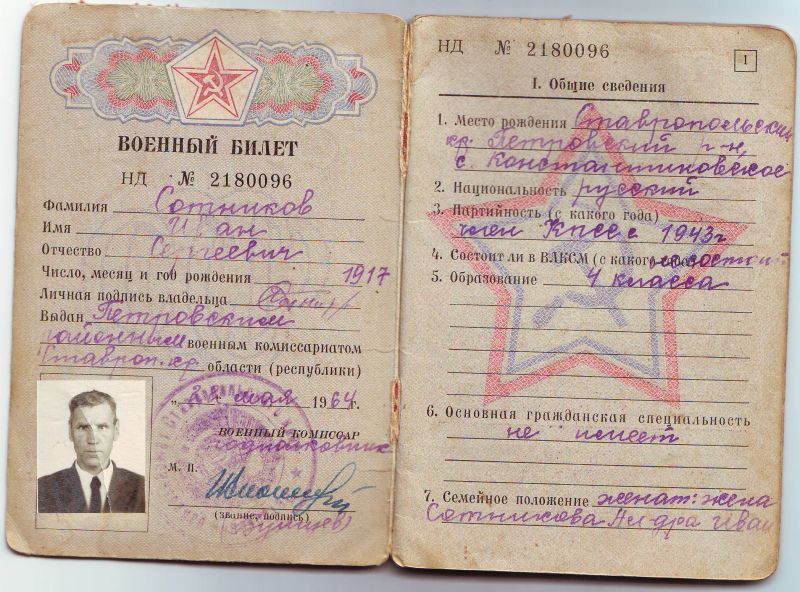 ВОЕННЫЙ БИЛЕТ
НД № 2180096
Фамилия Сотников
Имя Иван
Отчество Сергеевич
Число, месяц и год рождения 1917
Личная подпись владельца
Выдан Петровским
районным военным комиссариатом
Ставроп. кр. области (республики)
мая 1964 г.
ВОЕННЫЙ КОМИССАР
подполковник
М. П.
(звание, подпись)
НД № 2180096
1
I. Общие сведения
1. Место рождения Ставропольский
кр. Петровский р-н,
с. Константиновское
2. Национальность русский
3. Партийность (с какого года)
член КПСС с 1943 г
4. Состоит ли в ВЛКСМ (с какого не состоит
5. Образование 4 класса
6. Основная гражданская специальность
не имеет
7. Семейное положение женат: жена
Сотникова Иван